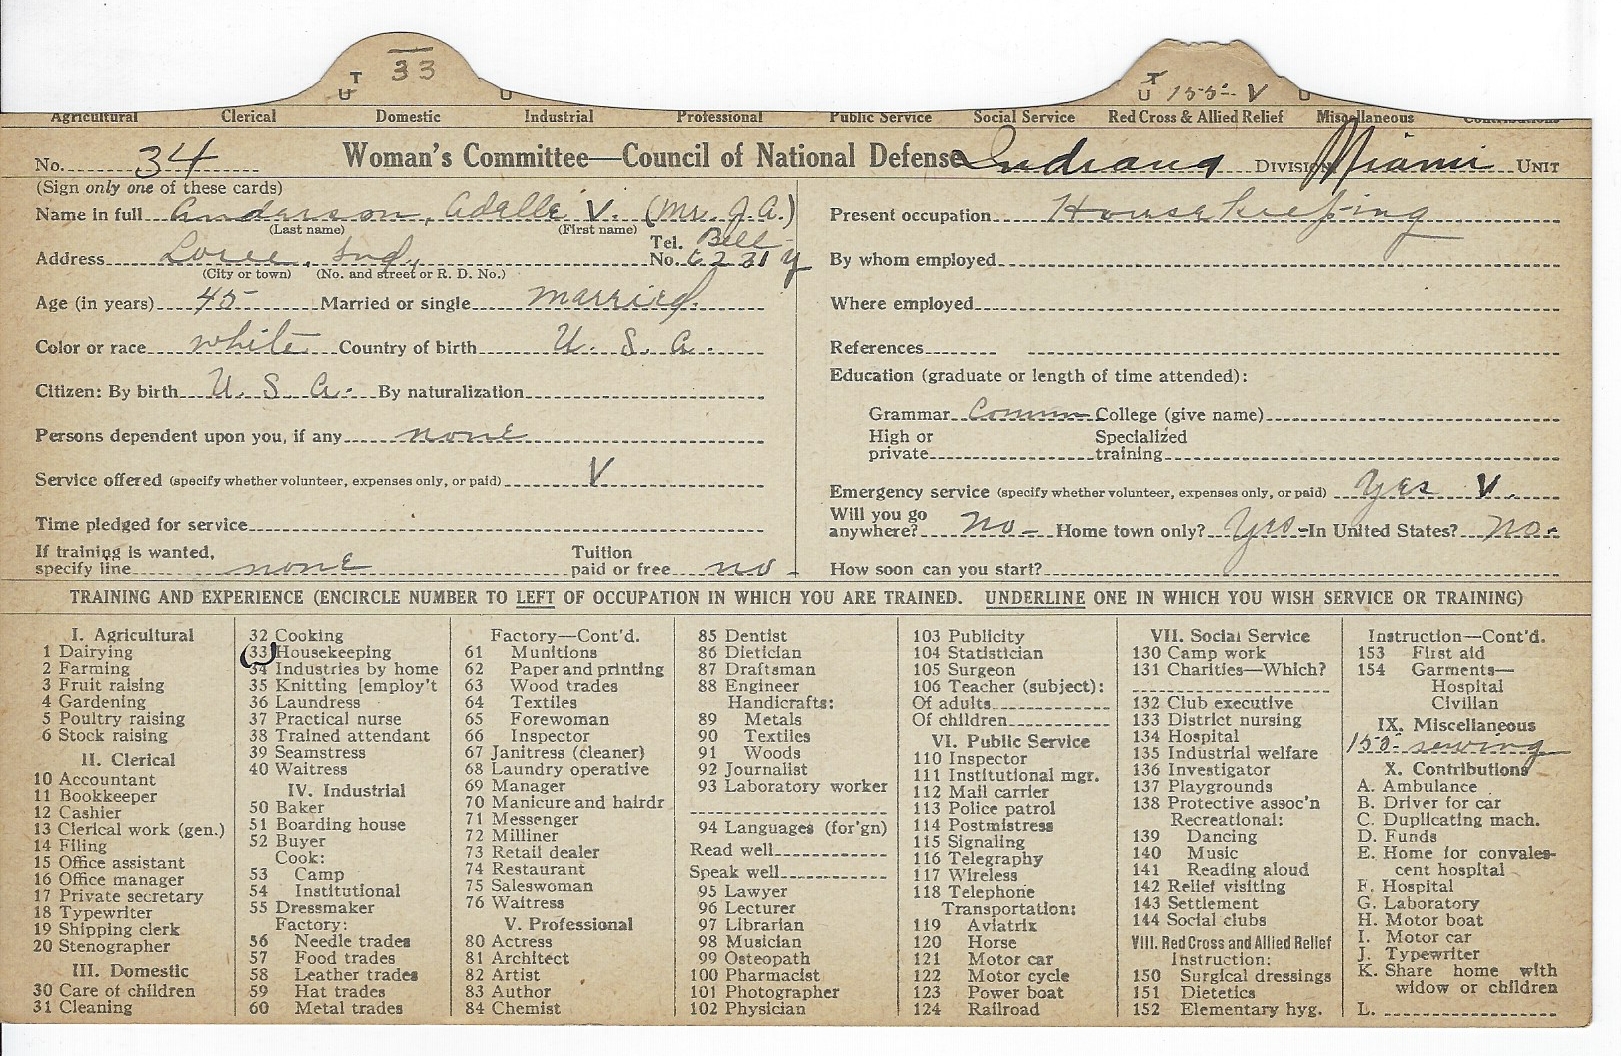 T U 33 U
T U 155- V U
Agricultural Clerical Domestic Industrial Professional Public Service Social Service Red Cross & Allied Relief Miscellaneous Contributions
No. 34 Woman's Committee—Council of National Defense Indiana DIVISION Miami UNIT
(Sign only one of these cards)
Name in full Anderson, Adelle V. (Mrs. J. A.)
(Last name) (First name)
Address Loree, Ind. Tel. No. Bell 6231 y
(City or town) (No. and street or R. D. No.)
Age (in years) 45- Married or single married.
Color or race white Country of birth U. S. A.
Citizen: By birth U. S. A. By naturalization
Persons dependent upon you, if any none
Service offered (specify whether volunteer, expenses only, or paid) V
Time pledged for service
If training is wanted, Tuition
specify line none paid or free no -
Present occupation Housekeeping
By whom employed
Where employed
References
Education (graduate or length of time attended):
Grammar Common College (give name)
High or Specialized
private training
Emergency service (specify whether volunteer, expenses only, or paid) Yes V.
Will you go
anywhere? no - Home town only? Yes - In United States? no -
How soon can you start?
TRAINING AND EXPERIENCE (ENCIRCLE NUMBER TO LEFT OF OCCUPATION IN WHICH YOU ARE TRAINED. UNDERLINE ONE IN WHICH YOU WISH SERVICE OR TRAINING)
I. Agricultural
1 Dairying
2 Farming
3 Fruit raising
4 Gardening
5 Poultry raising
6 Stock raising
II. Clerical
10 Accountant
11 Bookkeeper
12 Cashier
13 Clerical work (gen.)
14 Filing
15 Office assistant
16 Office manager
17 Private secretary
18 Typewriter
19 Shipping clerk
20 Stenographer
III. Domestic
30 Care of children
31 Cleaning
32 Cooking
33 Housekeeping
34 Industries by home
35 Knitting [employ't
36 Laundress
37 Practical nurse
38 Trained attendant
39 Seamstress
40 Waitress
IV. Industrial
50 Baker
51 Boarding house
52 Buyer
Cook:
53 Camp
54 Institutional
55 Dressmaker
Factory:
56 Needle trades
57 Food trades
58 Leather trades
59 Hat trades
60 Metal trades
Factory—Cont'd.
61 Munitions
62 Paper and printing
63 Wood trades
64 Textiles
65 Forewoman
66 Inspector
67 Janitress (cleaner)
68 Laundry operative
69 Manager
70 Manicure and hairdr
71 Messenger
72 Milliner
73 Retail dealer
74 Restaurant
75 Saleswoman
76 Waitress
V. Professional
80 Actress
81 Architect
82 Artist
83 Author
84 Chemist
85 Dentist
86 Dietician
87 Draftsman
88 Engineer
Handicrafts:
89 Metals
90 Textiles
91 Woods
92 Journalist
93 Laboratory worker
94 Languages (for'gn)
Read well
Speak well
95 Lawyer
96 Lecturer
97 Librarian
98 Musician
99 Osteopath
100 Pharmacist
101 Photographer
102 Physician
103 Publicity
104 Statistician
105 Surgeon
106 Teacher (subject):
Of adults
Of children
VI. Public Service
110 Inspector
111 Institutional mgr.
112 Mail carrier
113 Police patrol
114 Postmistress
115 Signaling
116 Telegraphy
117 Wireless
118 Telephone
Transportation:
119 Aviatrix
120 Horse
121 Motor car
122 Motor cycle
123 Power boat
124 Railroad
VII. Social Service
130 Camp work
131 Charities—Which?
132 Club executive
133 District nursing
134 Hospital
135 Industrial welfare
136 Investigator
137 Playgrounds
138 Protective assoc'n
Recreational:
139 Dancing
140 Music
141 Reading aloud
142 Relief visiting
143 Settlement
144 Social clubs
VIII. Red Cross and Allied Relief
Instruction:
150 Surgical dressings
151 Dietetics
152 Elementary hyg.
Instruction—Cont'd.
153 First aid
154 Garments—
Hospital
Civilian
IX. Miscellaneous
155- sewing
X. Contributions
A. Ambulance
B. Driver for car
C. Duplicating mach.
D. Funds
E. Home for convales-
cent hospital
F. Hospital
G. Laboratory
H. Motor boat
I. Motor car
J. Typewriter
K. Share home with
widow or children
L.